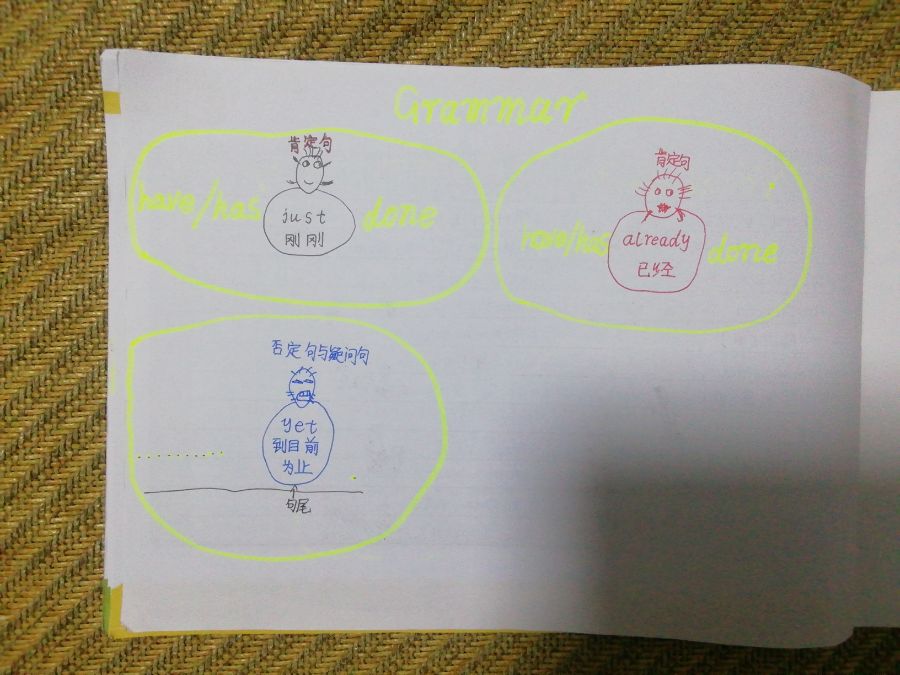 Grammar
肯定句
have/has just done
刚刚
肯定句
have/has already done
已经
否定句与疑问句
yet
到目前
为止
句尾